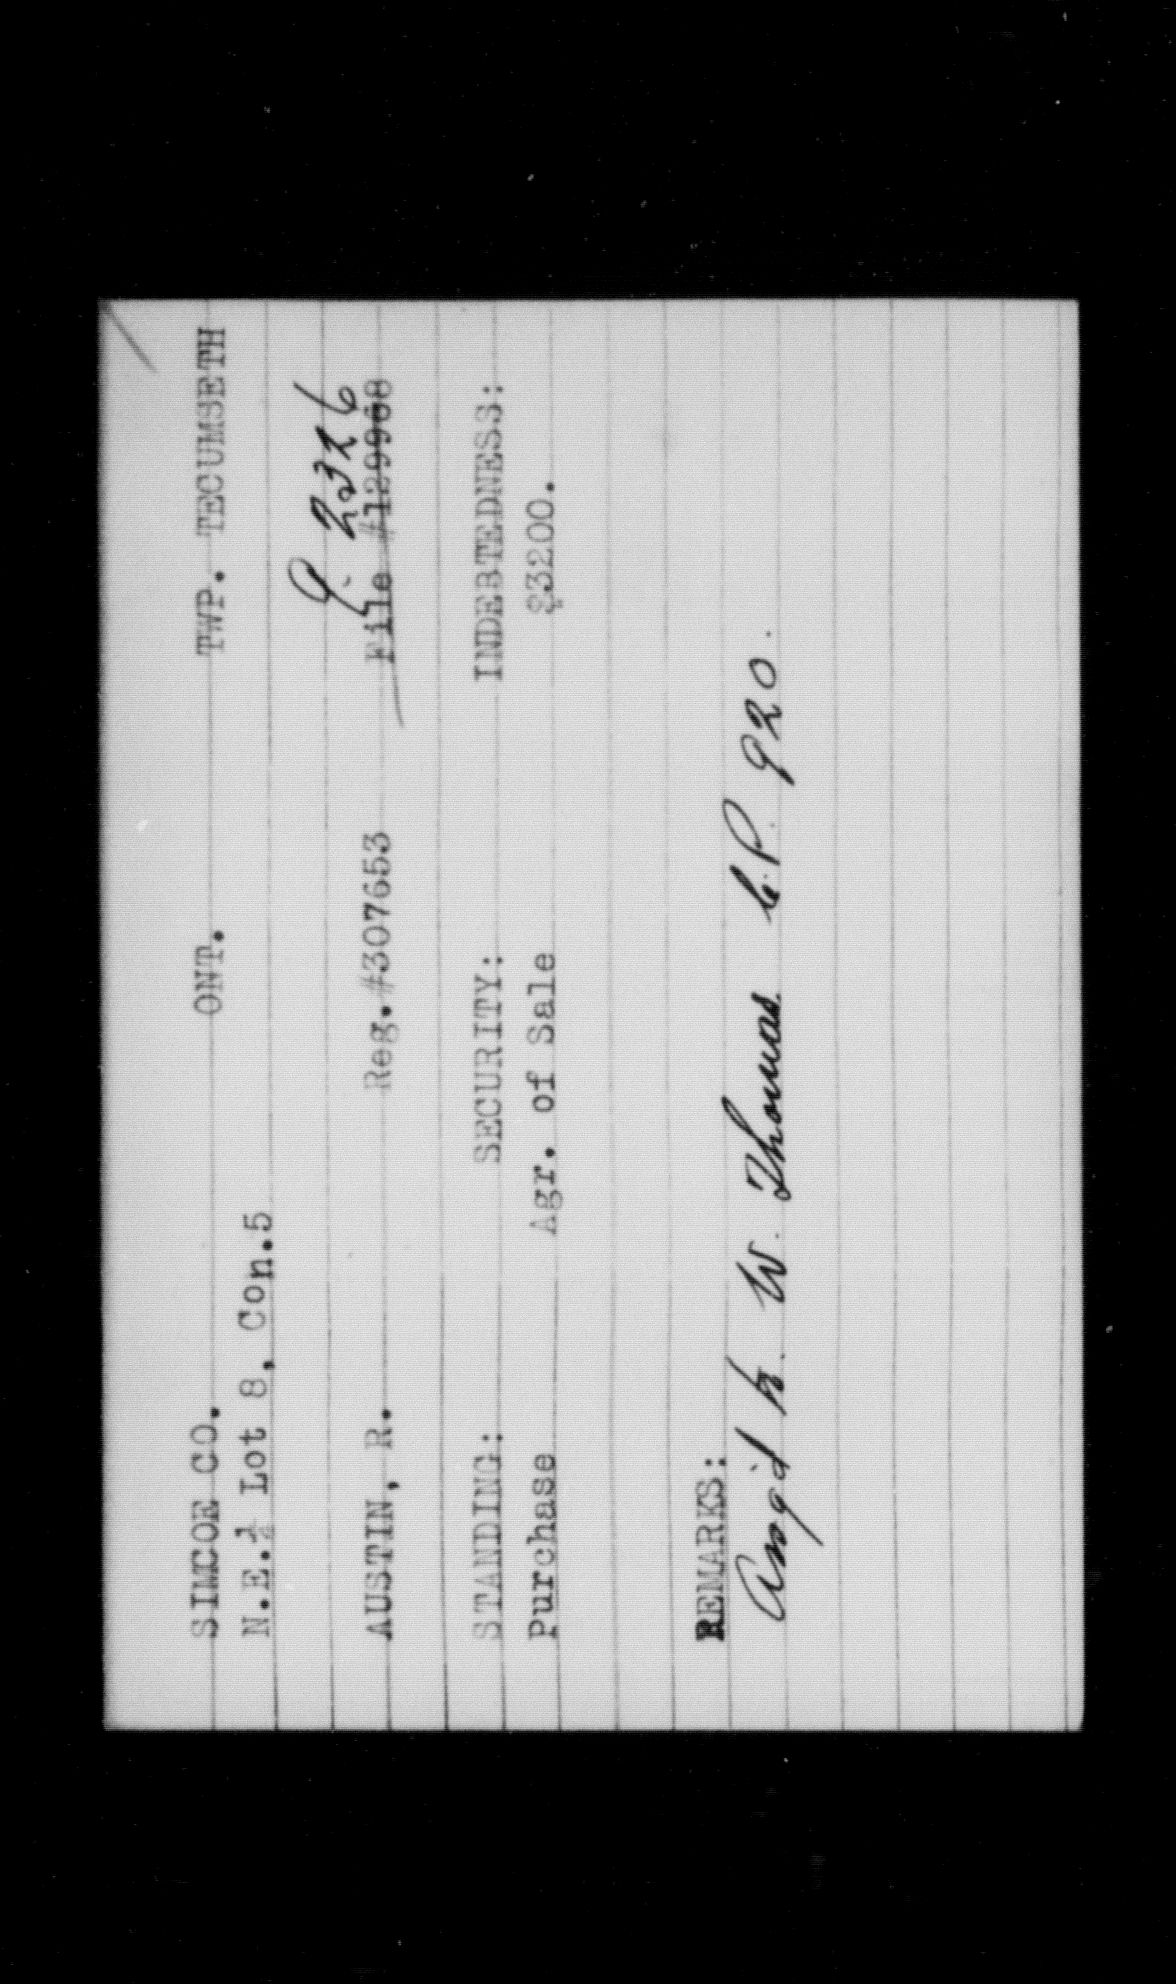 SIMCOE CO. ONT. TWP. TECUMSETH
N.E.½ Lot 8, Con.5
P. 2326
AUSTIN, R. Reg.#307653 File #129968
STANDING: SECURITY: INDEBTEDNESS:
Purchase Agr. of Sale $3200.
REMARKS:
Asng'd to W. Thomas C.P. 920.